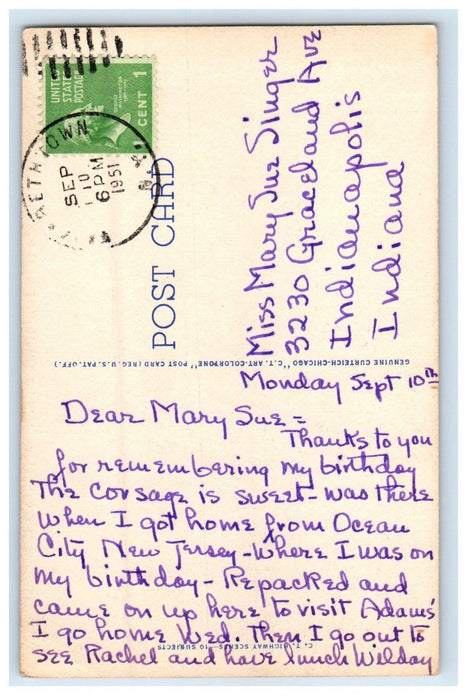 UNITED
STATES
POSTAGE
1 CENT
TOWN
SEP
10
6 PM
1951
POST CARD
Miss Mary Sue Singer
3230 Graceland Ave
Indianapolis
Indiana
GENUINE CURTEICH-CHICAGO "C.T. ART-COLORTONE" POST CARD (REG. U.S. PAT. OFF.)
Monday Sept 10th
Dear Mary Sue =
Thanks to you
for remembering my birthday
The corsage is sweet - was there
when I got home from Ocean
City New Jersey - where I was on
my birthday - Repacked and
came on up here to visit Adams'
I go home Wed. Then I go out to
C. T. HIGHWAY SCENES - 10 SUBJECTS
see Rachel and have lunch